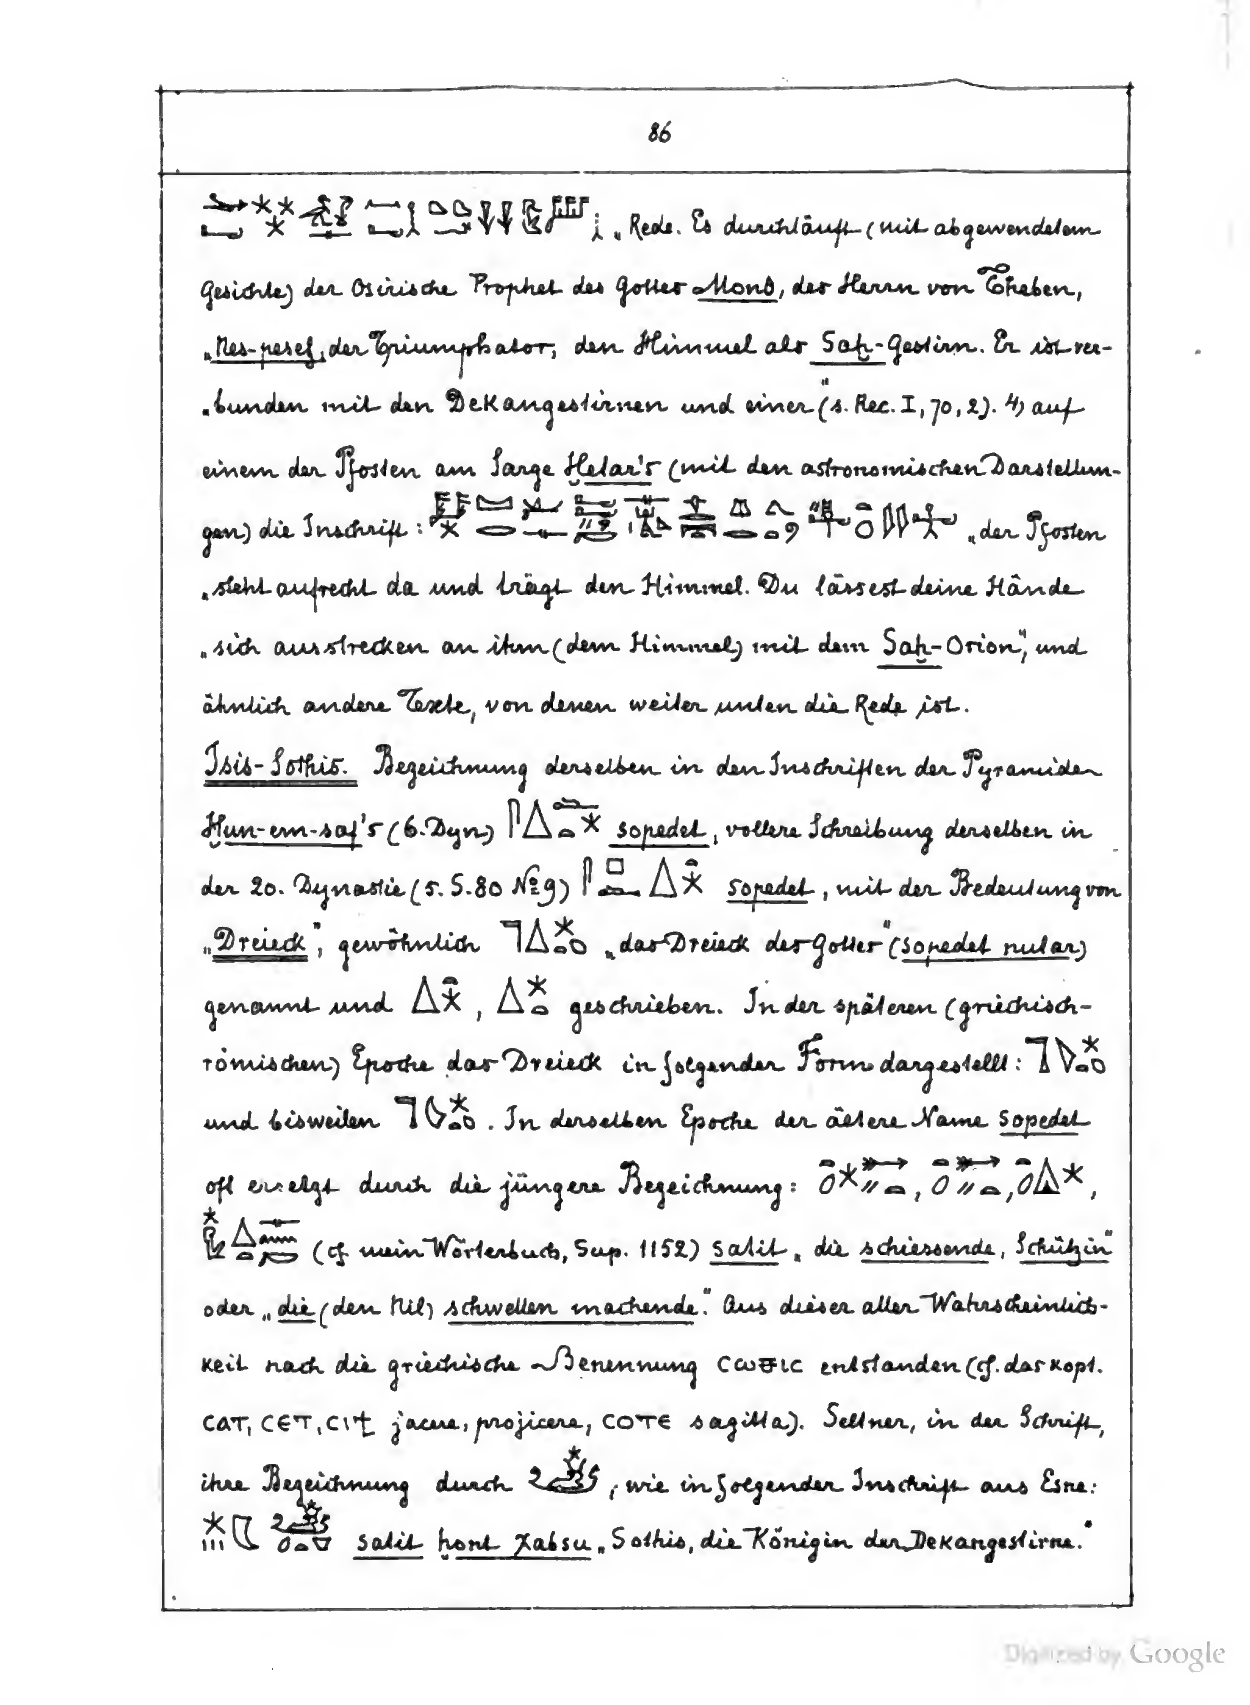 86
„Rede. Es durchläuft (mit abgewendetem
Gesichte) der Osirische Prophet des Gottes Mond, des Herrn von Theben,
„Nes-pesef, der Triumphator, den Himmel als Saḥ-Gestirn. Er ist ver-
„bunden mit den Dekangestirnen und einer" (s. Rec. I, 70, 2). 4) auf
einem der Pfosten am Sarge Ḥetar's (mit den astronomischen Darstellun-
gen) die Inschrift: „der Pfosten
„steht aufrecht da und trägt den Himmel. Du lässest deine Hände
„sich ausstrecken an ihm (dem Himmel) mit dem Saḥ-Orion", und
ähnlich andere Texte, von denen weiter unten die Rede ist.
Isis-Sothis. Bezeichnung derselben in den Inschriften der Pyramide
Ḥun-em-saf's (6. Dyn) sopedet, vollere Schreibung derselben in
der 20. Dynastie (s. S. 80 № 9) sopedet, mit der Bedeutung von
„Dreieck", gewöhnlich „das Dreieck des Gottes" (sopedet nutar)
genannt und , geschrieben. In der späteren (griechisch-
römischen) Epoche das Dreieck in folgender Form dargestellt:
und bisweilen . In derselben Epoche der ältere Name sopedet
oft ersetzt durch die jüngere Bezeichnung: , , ,
(cf mein Wörterbuch, Sup. 1152) satit „die schiessende, Schützin"
oder „die (den Nil) schwellen machende". Aus dieser aller Wahrscheinlich-
keit nach die griechische Benennung entstanden (cf. das kopt.
ⲥⲁⲧ, ⲥⲉⲧ, ⲥⲓϯ jacere, projicere, ⲥⲟⲧⲉ sagitta). Seltner, in der Schrift,
ihre Bezeichnung durch , wie in folgender Inschrift aus Esne:
satit ḥont χabsu „Sothis, die Königin der Dekangestirne."
Digitized by Google